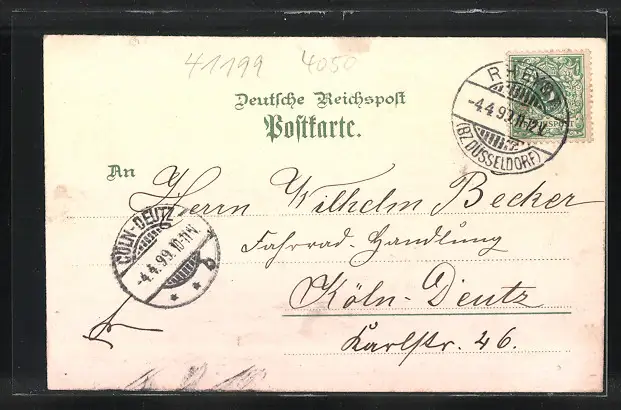 41199 4050
Deutsche Reichspost
Postkarte.
RHEYDT
-4.4.99.11-12V.
(BZ.DÜSSELDORF)
An Herrn Wilhelm Becker
Fahrrad-Handlung
Köln-Deutz
Karlstr. 26.
CÖLN-DEUTZ
-4.4.99.10-11V.
* b *